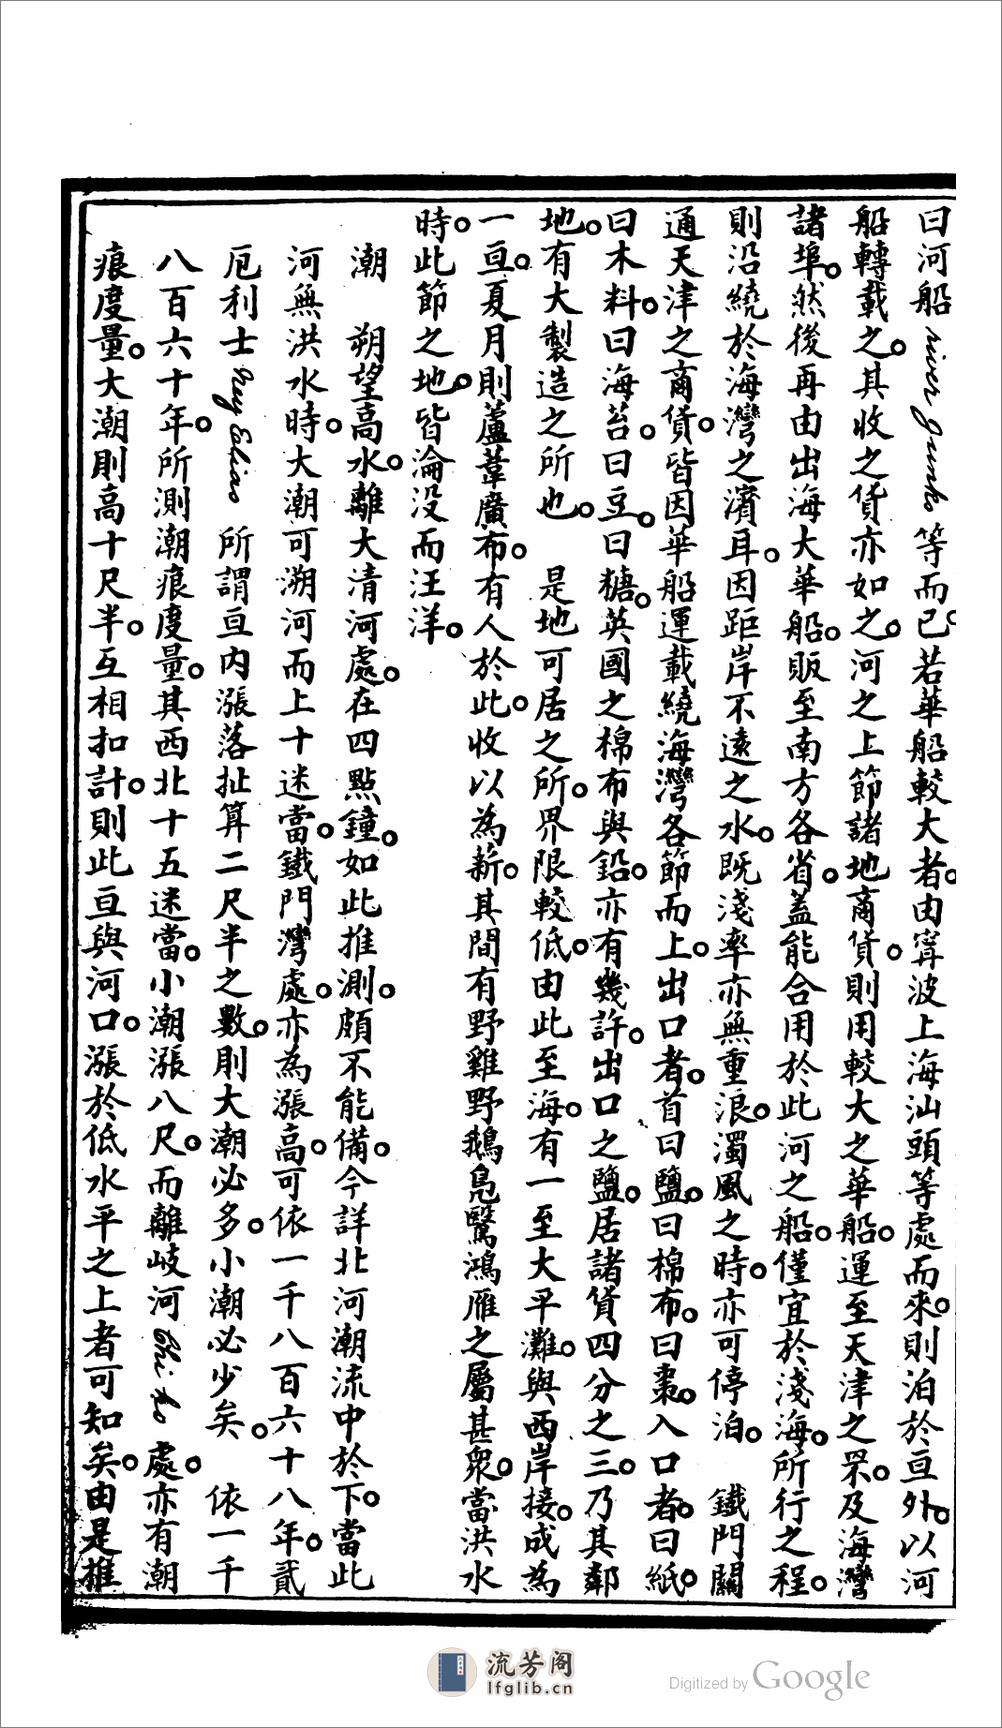 曰河船 river junks 等而已。若華船較大者。由甯波上海汕頭等處而來。則泊於亘外。以河
船轉載之。其收之貨亦如之。河之上節諸地商貨。則用較大之華船。運至天津之眾。及海灣
諸埠。然後再由出海大華船。販至南方各省。蓋能合用於此河之船。僅宜於淺海。所行之程。
則沿繞於海灣之濱耳。因距岸不遠之水。既淺率亦無重浪。濁風之時。亦可停泊　鐵門關
通天津之商貨。皆因華船運載繞海灣各節而上。出口者。首曰鹽。曰棉布。曰棗。入口者。曰紙。
曰木料。曰海苔。曰豆。曰糖。英國之棉布與鉛。亦有幾許。出口之鹽。居諸貨四分之三。乃其鄰
地。有大製造之所也。　是地可居之所。界限較低。由此至海。有一至大平灘。與西岸接。成為
一亘。夏月則蘆葦廣布。有人於此。收以為薪。其間有野雞野鵝鳧鷖鴻雁之屬甚眾。當洪水
時。此節之地。皆淪没而汪洋。
潮　朔望高水。離大清河處。在四點鐘。如此推測。頗不能備。今詳北河潮流中於下。當此
河無洪水時。大潮可溯河而上十迷當。鐵門灣處。亦為漲高。可依一千八百六十八年。貳
厄利士 Ney Elias 所謂亘内漲落扯算二尺半之數。則大潮必多。小潮必少矣。　依一千
八百六十年。所測潮痕度量。其西北十五迷當。小潮漲八尺。而離岐河 處。亦有潮
痕度量。大潮則高十尺半。互相扣計。則此亘與河口。漲於低水平之上者可知矣。由是推
流芳阁
lfglib.cn
Digitized by Google